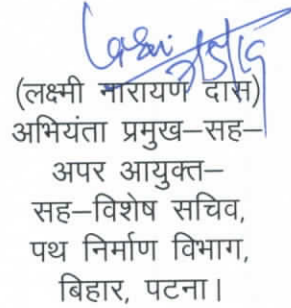 (लक्ष्मी नारायण दास)
अभियंता प्रमुख–सह–
अपर आयुक्त–
सह–विशेष सचिव,
पथ निर्माण विभाग,
बिहार, पटना।